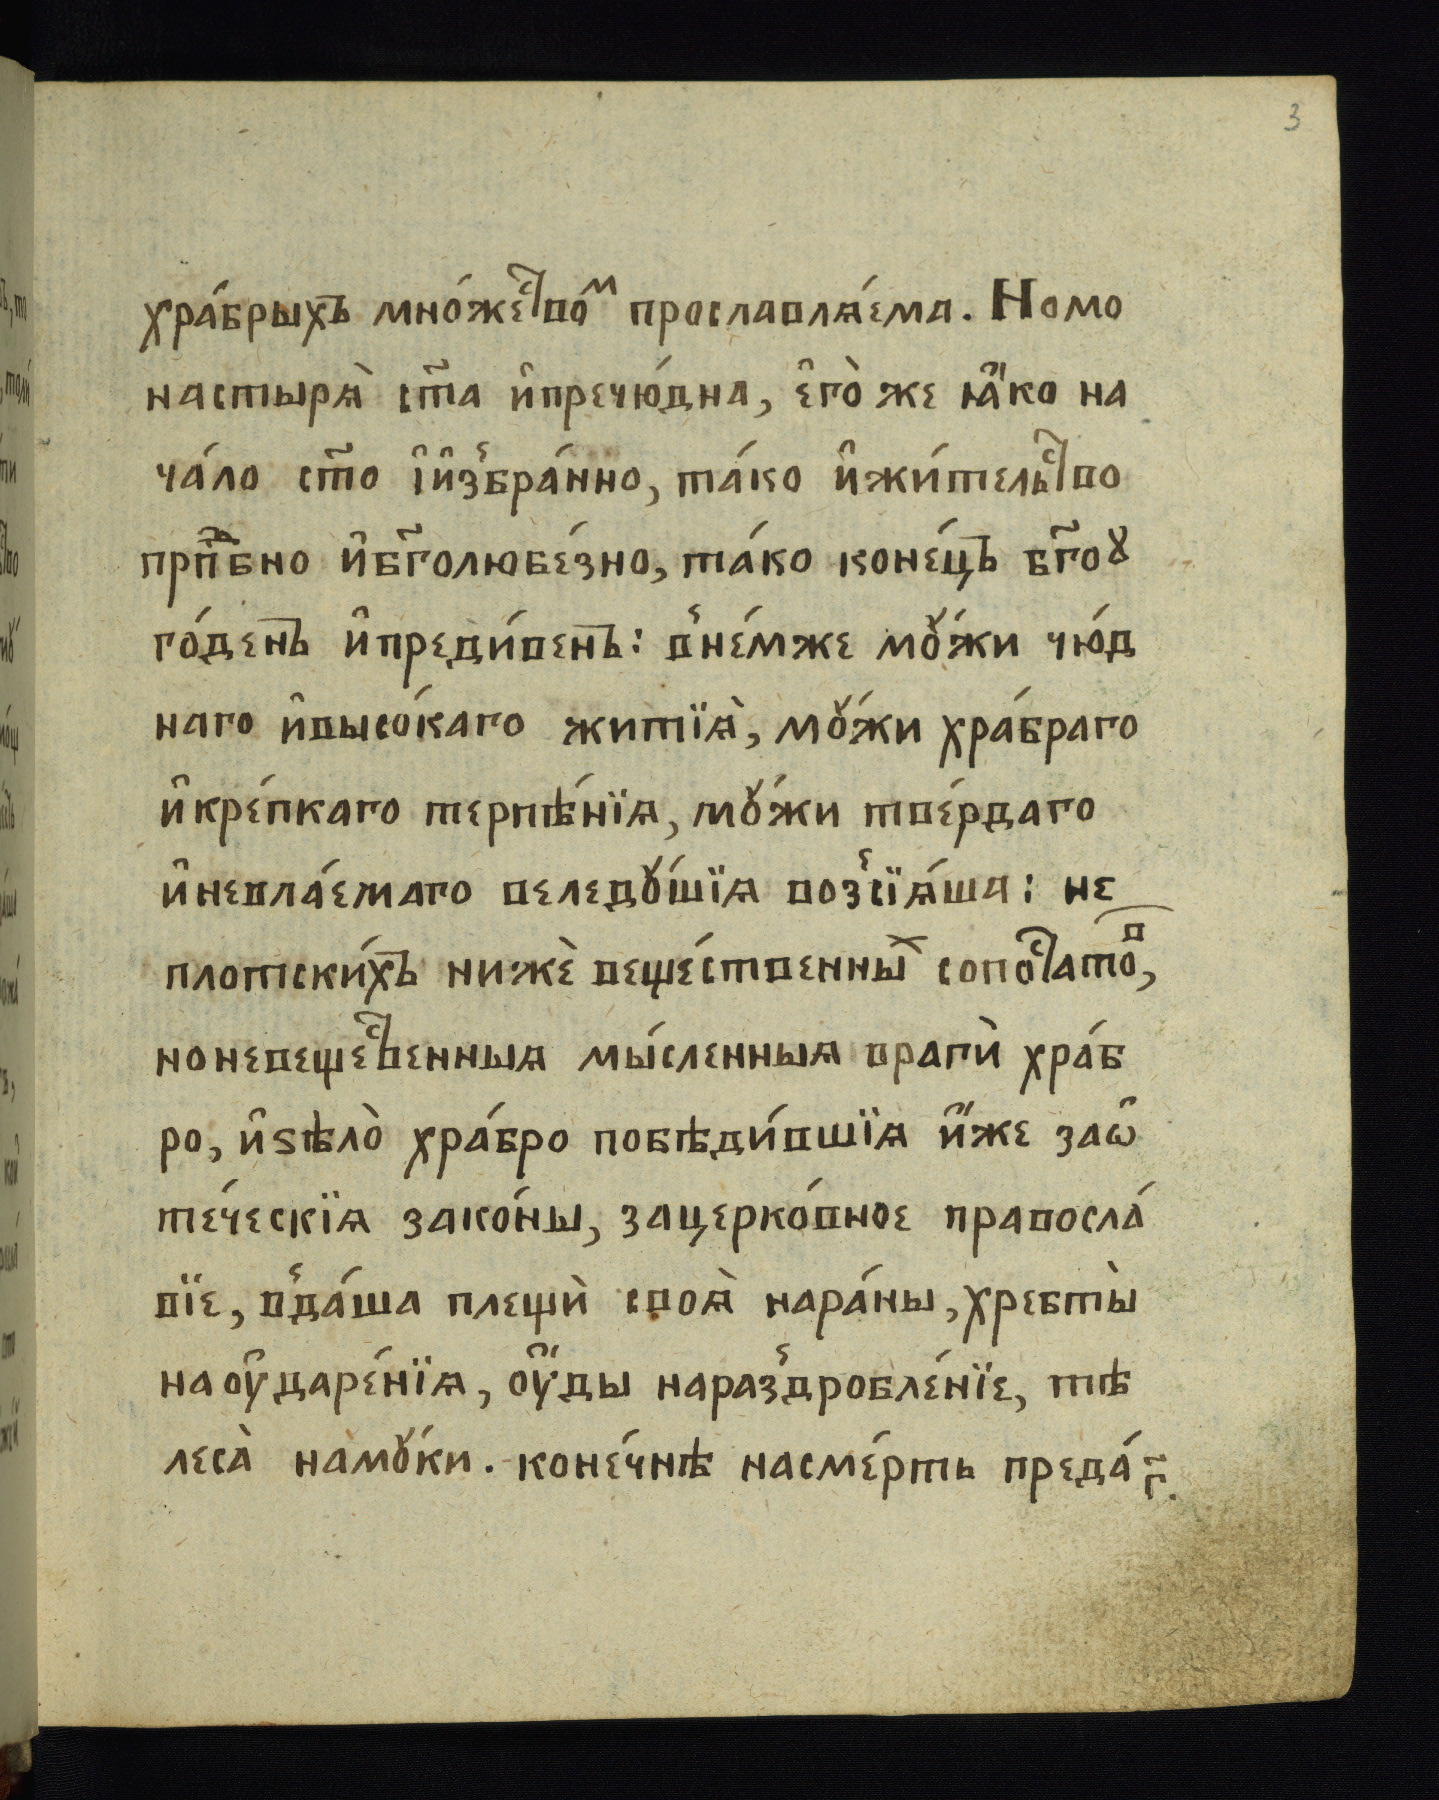 3
хра́брыхъ мно́жеⷭ҇твоⷨ прославлѧ́ема. Но мо
настырѧ̀ ст҃а и҆пречю́дна, є҆го̀ же ꙗ҆́ко на
ча́ло ст҃о і҆и҆збра́нно, та́ко и҆жи́тельⷭ҇тво
прпⷣбно и҆бг҃олюбе́зно, та́ко коне́цъ бг҃оꙋ
го́денъ и҆преди́венъ: в̾не́мже мꙋ́жи чю́д
наго и҆высо́каго житїѧ̀, мꙋ́жи хра́браго
и҆кре́пкаго терпѣ́нїѧ, мꙋ́жи тве́рдаго
и҆невлае́маго веледꙋ́шїѧ воз̾сїѧ́ша: не
плотски́хъ нижѐ веще́ственныⷯ сопоⷭ҇татоⷡ,
но невещеⷭ҇твенныѧ мы́сленныѧ врагѝ хра́б
ро, и҆ѕѣло̀ хра́бро побѣди́вшїѧ и҆́же заѡ҆
те́ческїѧ зако́ны, зацерко́вное правосла́
вїе, в̾да́ша плещѝ своѧ̀ нара́ны, хребты̀
наоу҆даре́нїѧ, оу҆́ды нараз̾дробле́нїе, тѣ
леса̀ намꙋ́ки. коне́чнѣ насме́рть преда́
г҃.